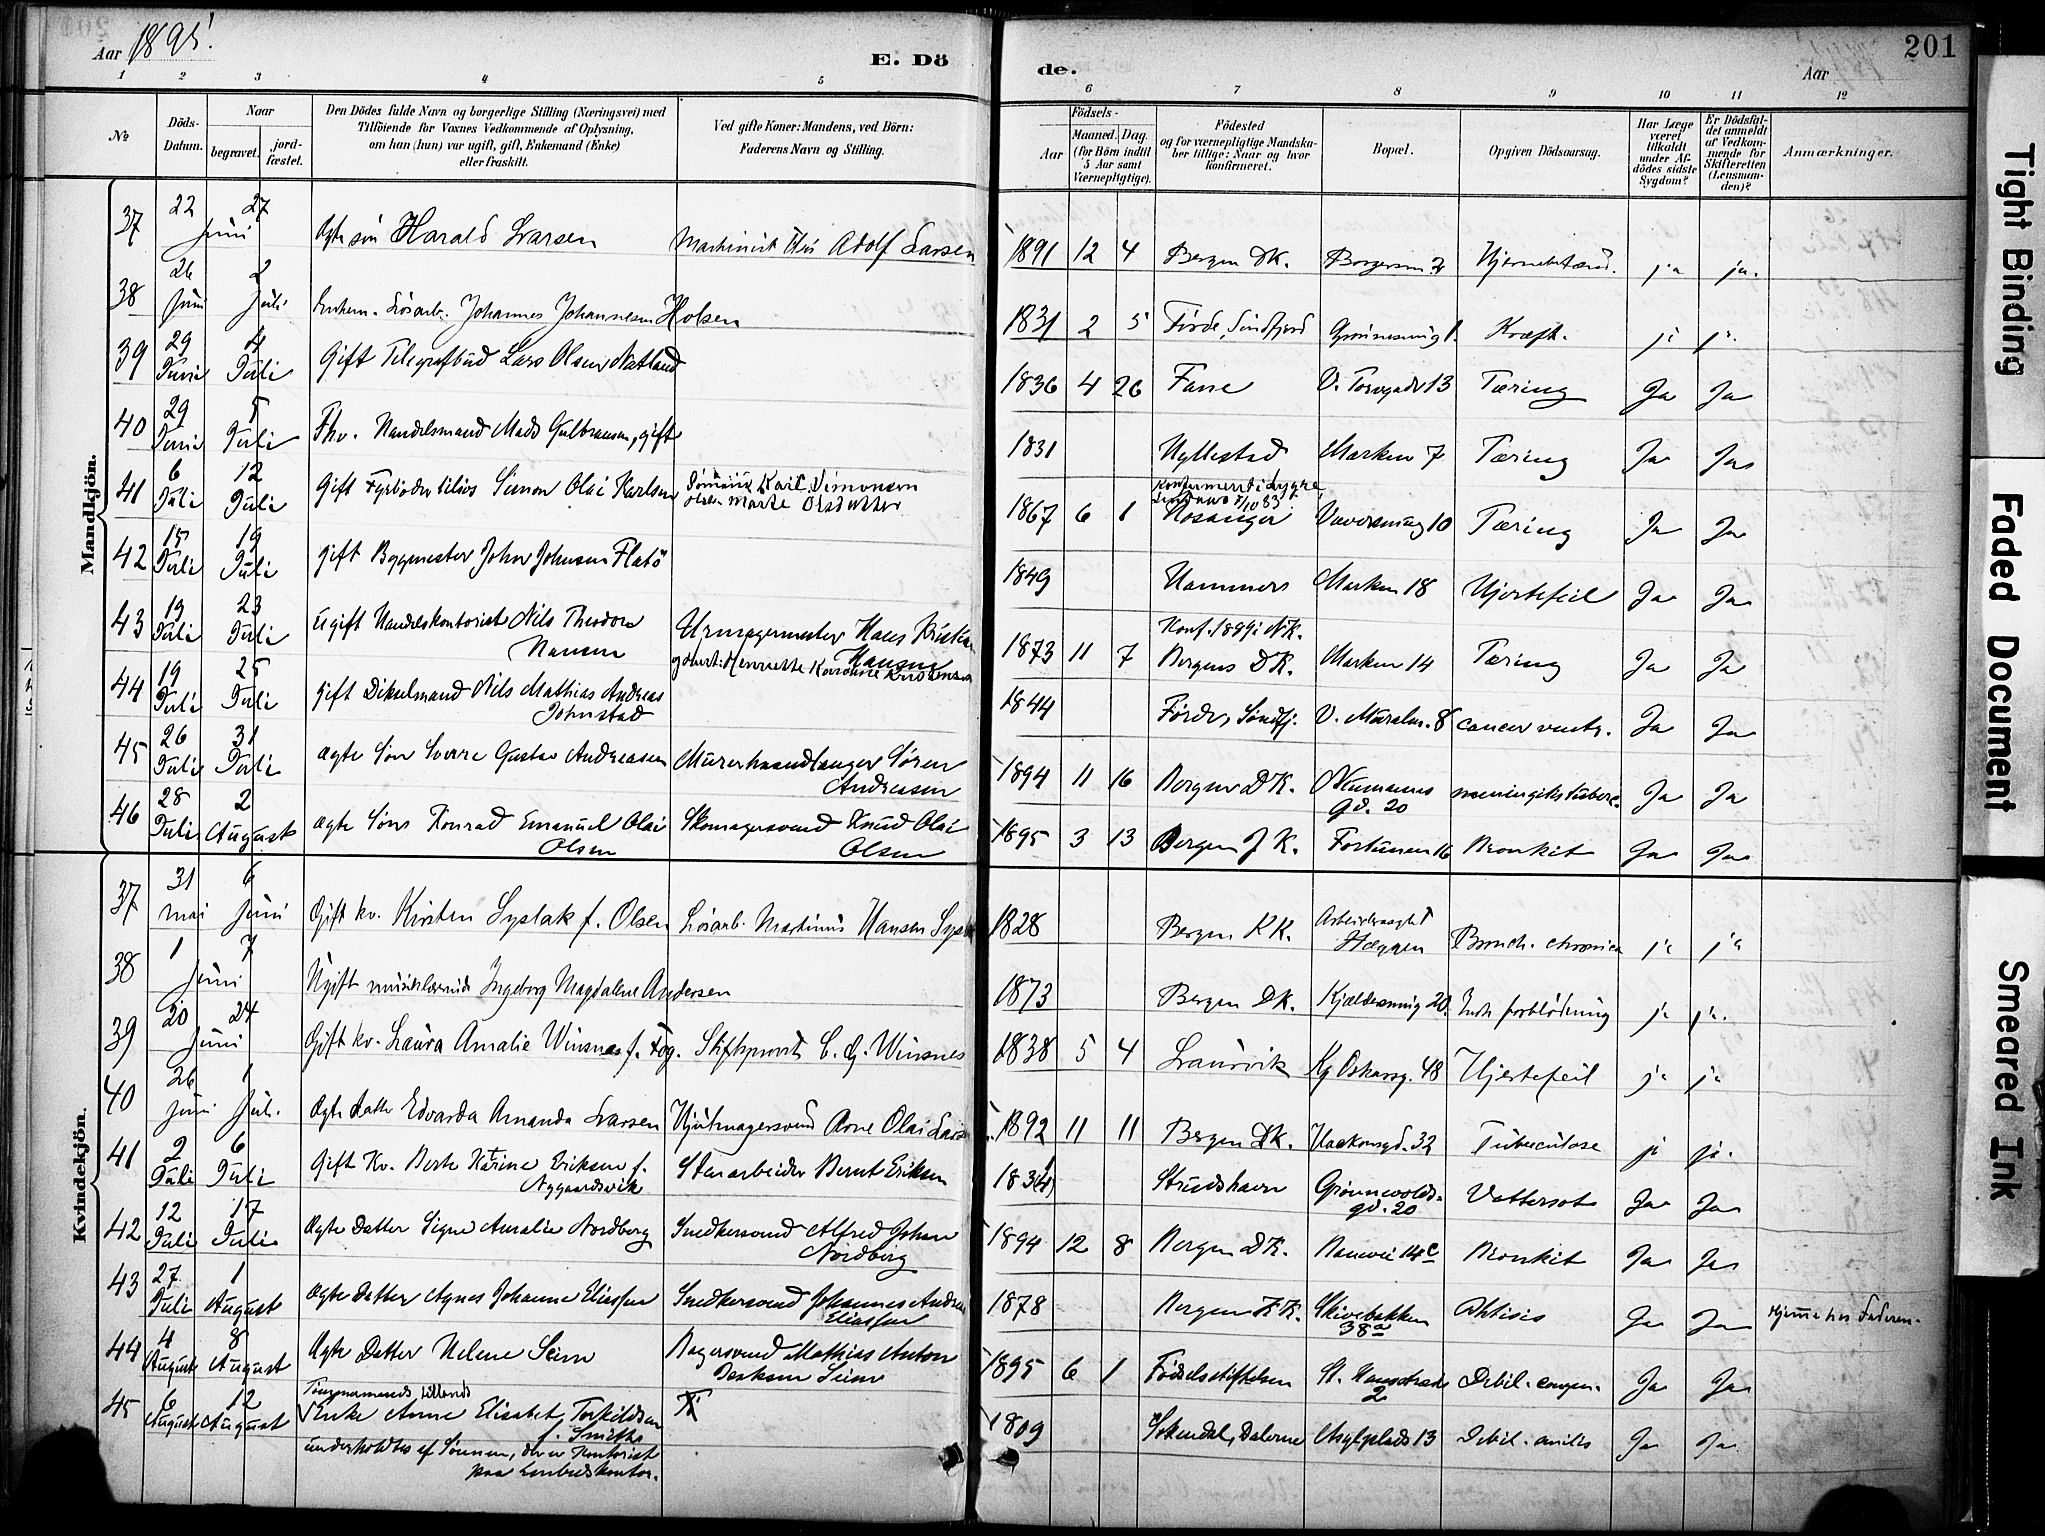 Aar 1895.
E. Dö
de.
Aar
201
1 2 3 4 5 6 7 8 9 10 11 12
No
Döds-Datum.
Naar
begravet.
jord-fæstet.
Den Dödes fulde Navn og borgerlige Stilling (Næringsvei) med
Tilföiende for Voxnes Vedkommende af Oplysning,
om han (hun) var ugift, gift, Enkemand (Enke)
eller fraskilt.
Ved gifte Koner: Mandens, ved Börn:
Faderens Navn og Stilling.
Födsels-
Aar
Maaned. Dag.
(for Börn indtil
5 Aar samt
Værnepligtige).
Födested
og for værnepligtige Mandska-
ber tillige: Naar og hvor
konfirmeret.
Bopæl.
Opgiven Dödsaarsag.
Har Læge
været
tilkaldt
under Af-
dödes sidste
Sygdom?
Er Dödsfal-
det anmeldt
af Vedkom-
mende for
Skifteretten
(Lensman-
den)?
Anmærkninger.
Mandkjön.
37 22 27 Juni Ægte søn Harald Larsen Machinist Adolf Larsen 1891 12 4 Bergen DK. ja ja.
38 26 Juni 2 Juli Enkem. Løsarb. Johannes Johannesen Holsen 1831 2 5 Førde, Søndfjord Kræft. ja ja
39 29 Juni 4 Juli Gift Telegrafbud Lars Olsen Natland 1836 4 26 Fane V. Torvgade 13 Tæring Ja Ja
40 29 Juni 5 Juli Fhv. Handelsmand Mads Gulbransen, gift 1831 Hyllestad Marken 7 Tæring Ja Ja
41 6 Juli 12 Juli Gift Fyrbøder Simon Olai Karlsen Karl Simonsen
Marte Olsdatter 1867 6 1 Hosanger 10 Tæring Ja Ja
42 15 Juli 19 Juli Gift Bygmester John Johnsen Flatø 1849 Hammers Marken 18 Hjertefeil Ja Ja
43 19 Juli 23 Juli Ugift Handelskontorist Nils Theodor
Hansen Urmagermester Hans Kristian
Hansen 1873 11 7 Bergens DK. Marken 14 Tæring Ja Ja
44 19 Juli 25 Juli Gift Nils Mathias Andreas
Johnstad 1844 Førde, Søndfj. V. Muralm. 8 cancer ventr. Ja Ja
45 26 Juli 31 Juli Ægte Søn Sverre Gustav Andreassen Murerhaandlanger Søren
Andreassen 1894 11 16 Bergen DK. Neumanns
gd. 20 Ja Ja
46 28 Juli 2 August Ægte Søn Konrad Emanuel Olai
Olsen Skomagersvend Knud Olai
Olsen 1895 3 13 Bergen J K. Fortunen 16 Bronkit Ja Ja
Kvindekjön.
37 31 mai 6 Juni Gift kv. Kirsten Systak f. Olsen Løsarb. Martinus Hansen 1828 Bergen KK. Hæggen Bronch. chronica ja ja
38 1 7 Juni Ugift Ingeborg Magdalene Andersen 1873 Bergen DK. Kjældersmug 20. forblødning ja ja.
39 20 24 Juni Gift kv. Laura Amalie Winsnes f. Fog. Stiftsprovst C. G. Winsnes 1838 5 4 Laurvik Kg Oskarsg. 48 Hjertefeil ja ja
40 26 Juni 1 Juli Ægte datter Edvarda Amanda Larsen Hjulmagersvend Arne Olai Larsen 1892 11 11 Bergen DK. Haakonsgd. 32 Tuberculose ja ja.
41 2 Juli 6 Juli Gift Kv. Berte Karine Eriksen f.
Nygaardsvik Stenarbeider Bernt Eriksen 183(4) Grønnevolds-
gd. 20 Vattersot Ja Ja
42 12 Juli 17 Juli Ægte Datter Signe Amalie Nordberg Snedkersvend Alfred Johan
Nordberg 1894 12 8 Bergen DK. 14c Bronkit Ja Ja
43 27 Juli 1 August Ægte Datter Agnes Johanne Eliassen Snedkersvend Johannes Andreas
Eliassen 1878 Bergen KK. Skivebakken
38a Phtisis Ja Ja Hjemme hos Faderen.
44 4 August 8 August Ægte Datter Helene Seim Bagersvend Mathias Anton
Seim 1895 6 1 Fødselsstiftelsen St. Hansstræde
2 Debil. congen. Ja Ja
45 6 August 12 August Enke Anne Elisabet Torkildsen
f. Smith
underholdtes af Sønnen, der er Kontorist
paa 1809 Sokendal, Dalerne Asylplads 13 Debil. senilis Ja Ja
Tight Binding
Faded Document
Smeared Ink